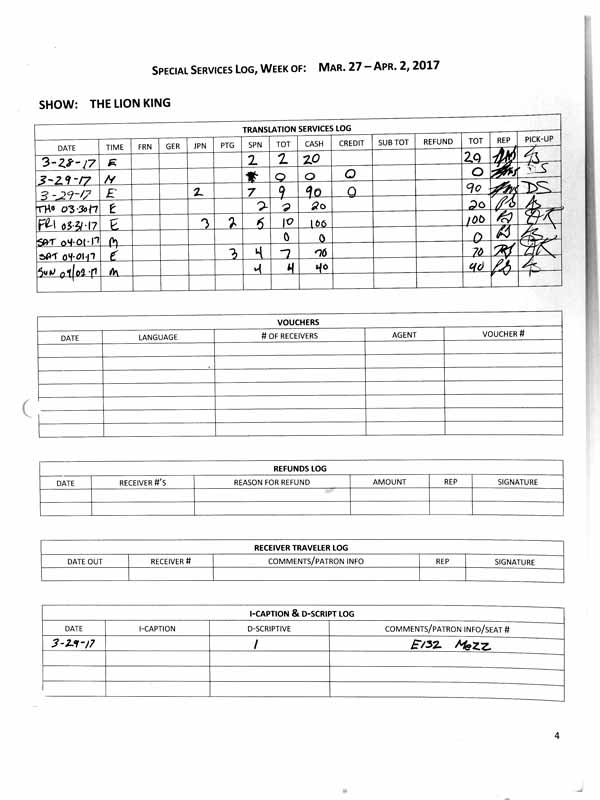 SPECIAL SERVICES LOG, WEEK OF: MAR. 27 – APR. 2, 2017
SHOW: THE LION KING
TRANSLATION SERVICES LOG
DATE TIME FRN GER JPN PTG SPN TOT CASH CREDIT SUB TOT REFUND TOT REP PICK-UP
3-28-17 E 2 2 20 20
3-29-17 M 0 0 0 0
3-29-17 E 2 7 9 90 0 90 DS
THU 03.30.17 E 2 2 20 20
FRI 03.31.17 E 3 2 5 10 100 100
SAT 04.01.17 M 0 0 0
SAT 04.01.17 E 3 4 7 70 70
SUN 04/02.17 M 4 4 40 40
VOUCHERS
DATE LANGUAGE # OF RECEIVERS AGENT VOUCHER #
REFUNDS LOG
DATE RECEIVER #'S REASON FOR REFUND AMOUNT REP SIGNATURE
RECEIVER TRAVELER LOG
DATE OUT RECEIVER # COMMENTS/PATRON INFO REP SIGNATURE
I-CAPTION & D-SCRIPT LOG
DATE I-CAPTION D-SCRIPTIVE COMMENTS/PATRON INFO/SEAT #
3-29-17 1 E132 MEZZ
4